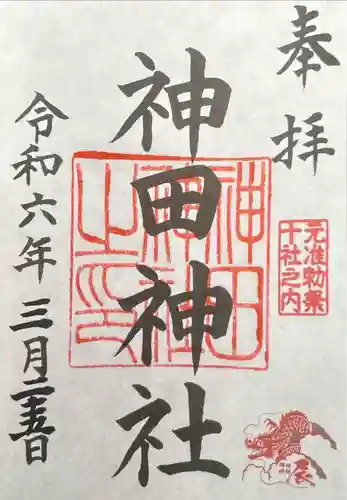 奉拝
元准勅祭
十社之内
神田神社
神田神社之印
令和六年三月二十五日
辰